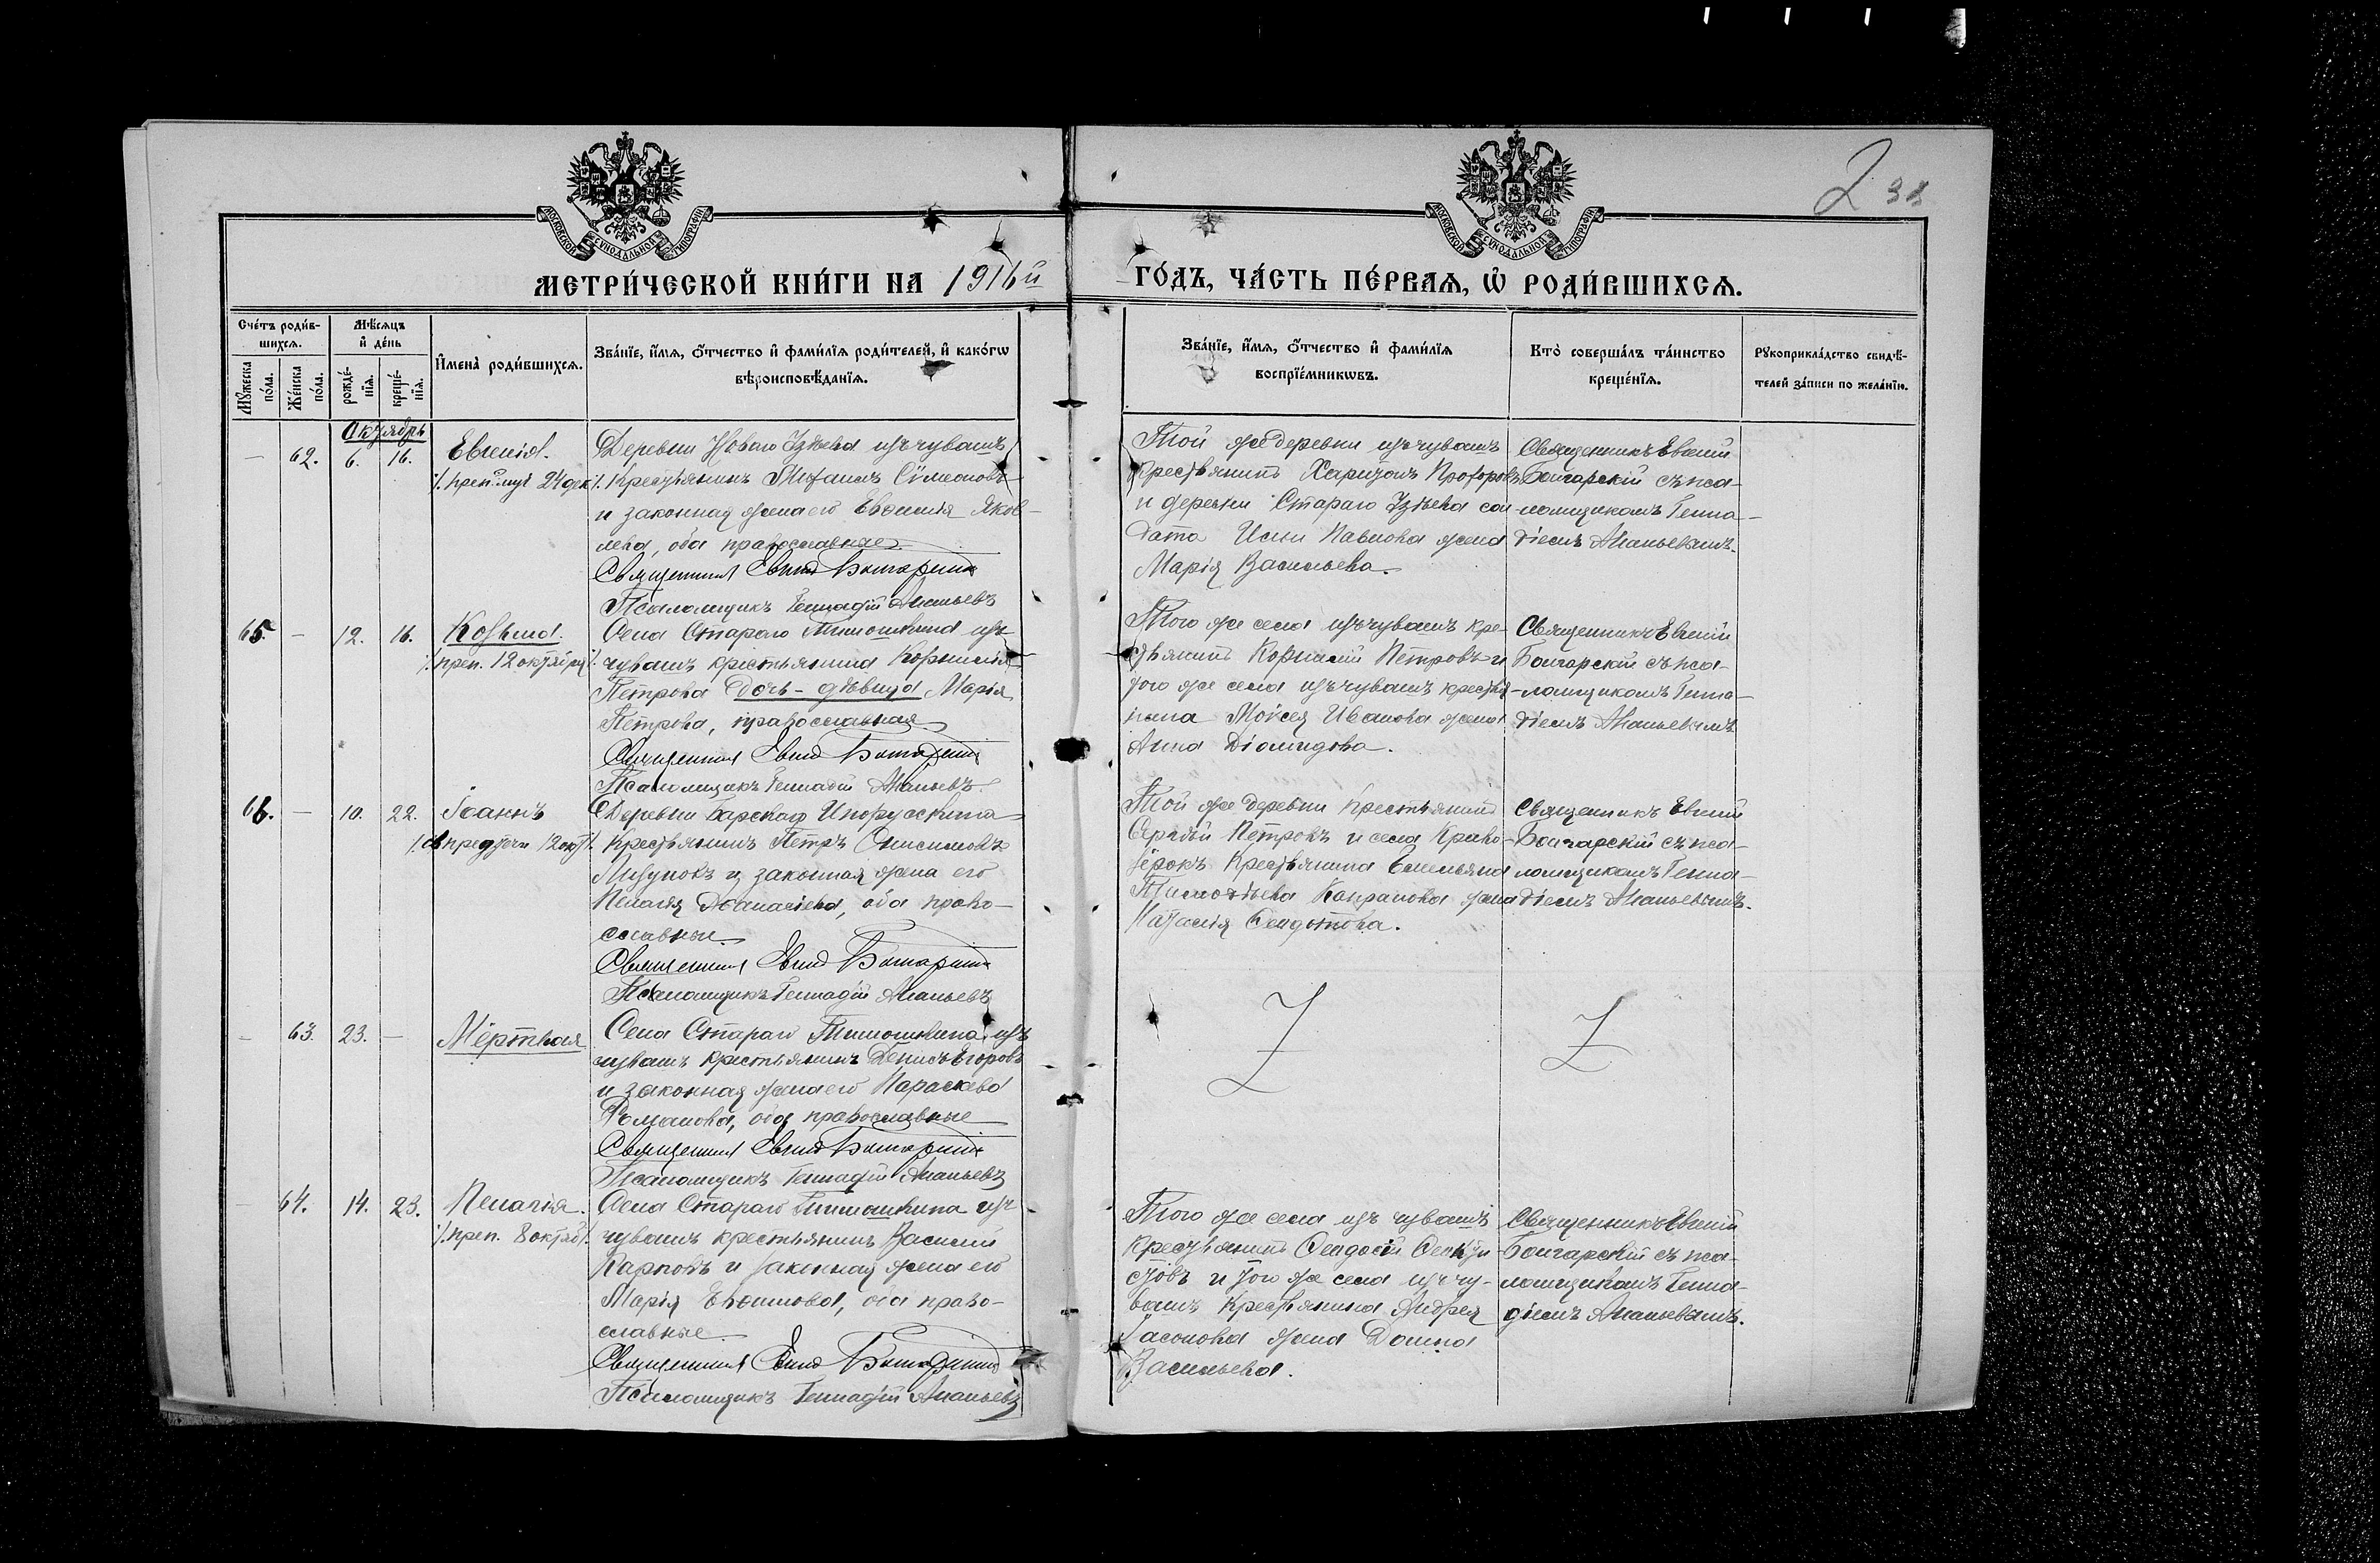 2 38
МОСКОВСКОЙ СУНОДАЛЬНОЙ ТИПОГРАФІИ
МОСКОВСКОЙ СУНОДАЛЬНОЙ ТИПОГРАФІИ
МЕТРИ́ЧЕСКОЙ КНИ́ГИ НА 1916й ГО́ДЪ, ЧА́СТЬ ПЕ́РВАѦ, Ѽ РОДИ́ВШИХСѦ.
Сче́тъ роди́в-
шихсѧ.
Мꙋжеска по́ла.
Же́нска по́ла.
Мѣ́сѧцъ
и҆ де́нь
рожде́-
нїѧ.
креще́-
нїѧ.
И҆мена̀ роди́вшихсѧ.
Зва́нїе, и҆́мѧ, ѻ҆́тчество и҆ фами́лїѧ роди́телей, и҆ како́гѡ
вѣроисповѣ́данїѧ.
Зва́нїе, и҆́мѧ, ѻ҆́тчество и҆ фами́лїѧ
воспрїе́мникѡвъ.
Кто̀ соверша́лъ та́инство
креще́нїѧ.
Рꙋкоприкла́дство свидѣ́-
телей за́писи по жела́нїю.
Октябрь
— 62. 6. 16.
Евгенія.
преп. муч. 24 дек.
Деревни Новаго Изъ чувашъ
крестьянинъ Симеоновъ
и законная жена его Яков-
лева, оба православные.
Священникъ Евгеній
Псаломщикъ Геннадій Ананьевъ
Той же деревни изъ чувашъ
крестьянинъ Харитонъ Прохоровъ
и деревни Стараго сол-
дата Павлова жена
Марія Васильева.
Священникъ Евгеній
Болгарскій съ пса-
ломщикомъ Генна-
діемъ Ананьевымъ.
65. — 12. 16.
Козьма.
преп. 12 октября
Села Стараго Тимошкина изъ
чувашъ крестьянина Корнилія
Петрова дочь-дѣвица Марія
Петрова, православная
Священникъ Евгеній
Псаломщикъ Геннадій Ананьевъ.
Того же села изъ чувашъ кре-
стьянинъ Корнилій Петровъ и
того же села изъ чувашъ крестья-
нина Моисея Иванова жена
Анна Діомидова.
Священникъ Евгеній
Болгарскій съ пса-
ломщикомъ Генна-
діемъ Ананьевымъ
66. — 10. 22.
Іоаннъ
предтечи 12 окт.
Деревни Барская
крестьянинъ Петръ Онисимовъ
и законная жена его
Пелагія Аѳанасіева, оба право-
славные.
Священникъ Евгеній
Псаломщикъ Геннадій Ананьевъ
Той же деревни крестьянинъ
Сергѣй Петровъ и села Криво-
зерокъ крестьянина Емельяна
Тимоѳеева жена
Наталія Ѳедотова.
Священникъ Евгеній
Болгарскій съ пса-
ломщикомъ Генна-
діемъ Ананьевымъ.
— 63. 23. —
Мёртвая
Села Стараго Тимошкина изъ
чувашъ крестьянинъ Денисъ Егоровъ
и законная жена его Параскева
Романова, оба православные
Священникъ Евгеній
Псаломщикъ Геннадій Ананьевъ
Z
Z
— 64. 14. 23.
Пелагія.
преп. 8 октяб.
Села Стараго Тимошкина изъ
чувашъ крестьянинъ Василій
Карповъ и законная жена его
Марія Евѳимова, оба право-
славные.
Священникъ Евгеній
Псаломщикъ Геннадій Ананьевъ
Того же села изъ чувашъ
крестьянинъ Ѳеодосій
и того же села изъ чу-
вашъ крестьянина Андрея
жена Домна
Васильева.
Священникъ Евгеній
Болгарскій съ пса-
ломщикомъ Генна-
діемъ Ананьевымъ.